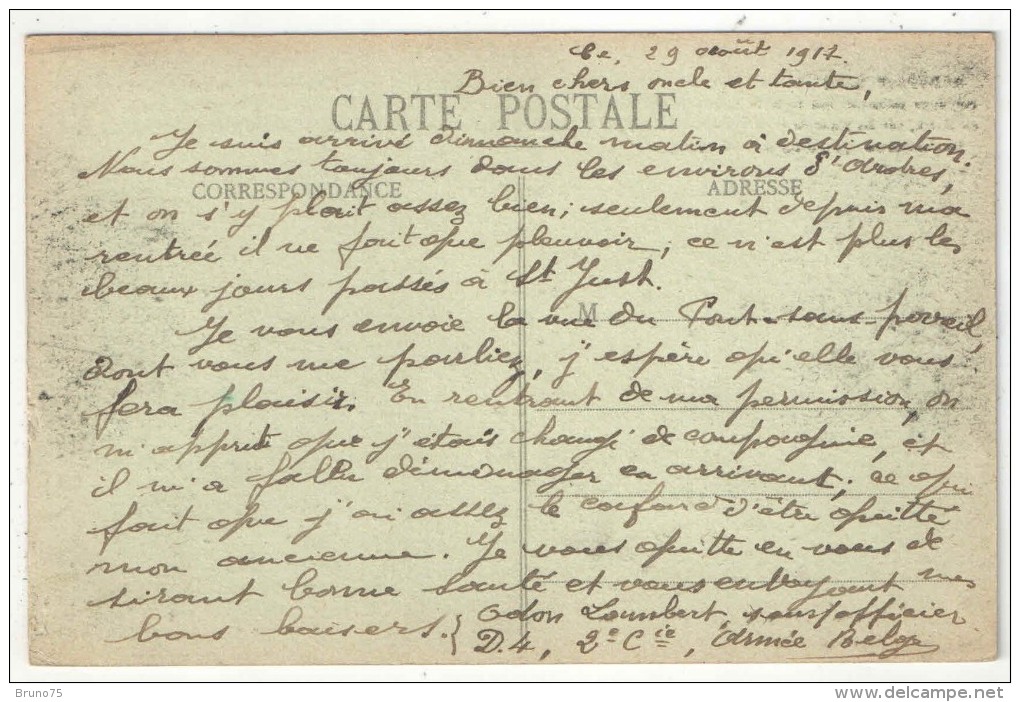 Ce, 29 août 1917.
Bien chers oncle et tante,
CARTE POSTALE
Je suis arrivé dimanche matin à destination.
Nous sommes toujours dans les environs d'Ardres,
CORRESPONDANCE
ADRESSE
et on s'y plait assez bien; seulement depuis ma
rentrée il ne fait que pleuvoir, ce n'est plus les
beaux jours passés à St Just.
M
Je vous envoie la vue du Pont-sans-pareil,
dont vous me parliez, j'espère qu'elle vous
fera plaisir. En rentrant de ma permission, on
m'apprit que j'étais changé de compagnie, et
il m'a fallu déménager en arrivant; ce qui
fait que j'ai assez le cafard d'être quitté
mon ancienne. Je vous quitte en vous dé
sirant bonne santé et vous envoyant mes
bons baisers.
Odon Lambert, sous officier
D.4, 2e Cie, Armée Belge
Bruno75
delcampe.net